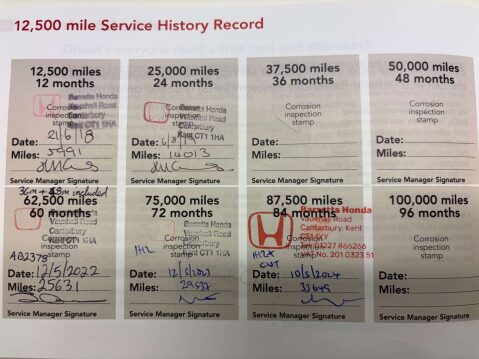 12,500 mile Service History Record
12,500 miles
12 months
Barretts Honda
Vauxhall Road
Canterbury
Kent CT1 1HA
Corrosion
inspection
stamp
Date: 21/6/18
Miles: 5991
Service Manager Signature
25,000 miles
24 months
Barretts Honda
Vauxhall Road
Canterbury
Kent CT1 1HA
Corrosion
inspection
stamp
Date: 6/8/19
Miles: 14013
Service Manager Signature
37,500 miles
36 months
Corrosion
inspection
stamp
Date:
Miles:
Service Manager Signature
50,000 miles
48 months
Corrosion
inspection
stamp
Date:
Miles:
Service Manager Signature
36m + 48m included
62,500 miles
60 months
Barretts Honda
Vauxhall Road
Canterbury
Kent CT1 1HA
Corrosion
inspection
stamp
AB2379
Date: 12/5/2022
Miles: 25631
Service Manager Signature
75,000 miles
72 months
Barretts Honda
Vauxhall Road
Canterbury
Kent CT1 1HA
Corrosion
inspection
stamp
Date: 12/5/2023
Miles: 29537
Service Manager Signature
87,500 miles
84 months
Barretts Honda
Vauxhall Road
Canterbury, Kent
CT1 1YX
Tel: 01227 866266
VAT No. 201 0323 51
Corrosion
inspection
stamp
Date: 10/5/2024
Miles: 33649
Service Manager Signature
100,000 miles
96 months
Corrosion
inspection
stamp
Date:
Miles:
Service Manager Signature